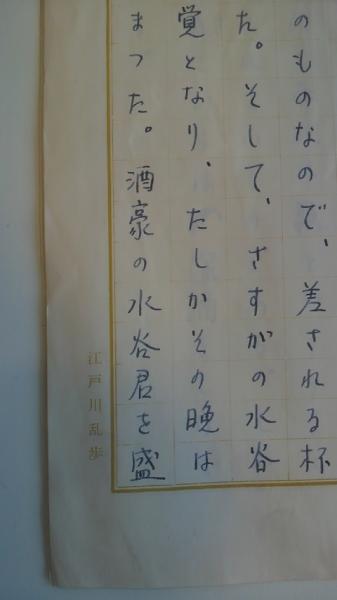 のものなので、差される杯
た。そして、さすがの水谷
覚となり、たしかその晩は
まつた。酒豪の水谷君を盛
江戸川乱歩